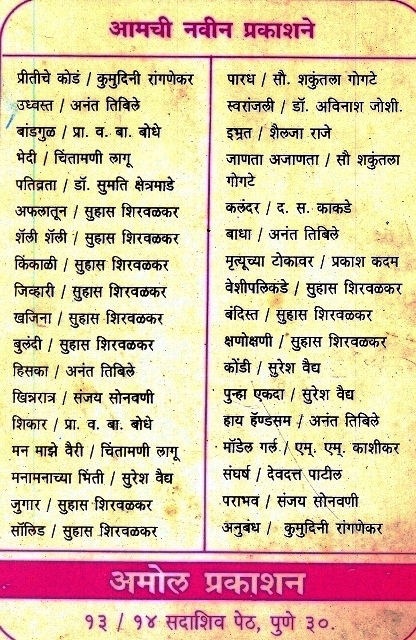 आमची नवीन प्रकाशने
प्रीतीचे कोडं / कुमुदिनी रांगणेकर
उध्वस्त / अनंत तिबिले
बांडगुळ / प्रा. व. बा. बोधे
भेदी / चिंतामणी लागू
पतिव्रता / डॉ. सुमति क्षेत्रमाडे
अफलातून / सुहास शिरवळकर
शॅली शॅली / सुहास शिरवळकर
किंकाळी / सुहास शिरवळकर
जिव्हारी / सुहास शिरवळकर
खजिना / सुहास शिरवळकर
बुलंदी / सुहास शिरवळकर
हिसका / अनंत तिबिले
खिन्नरात्र / संजय सोनवणी
शिकार / प्रा. व. बा. बोधे
मन माझे वैरी / चिंतामणी लागू
मनामनाच्या भिंती / सुरेश वैद्य
जुगार / सुहास शिरवळकर
सॉलिड / सुहास शिरवळकर
पारध / सौ. शकुंतला गोगटे
स्वरांजली / डॉ. अविनाश जोशी.
इभ्रत / शैलजा राजे
जाणता अजाणता / सौ शकुंतला
गोगटे
कलंदर / द. स. काकडे
बाधा / अनंत तिबिले
मृत्यूच्या टोकावर / प्रकाश कदम
वेशीपलिकडे / सुहास शिरवळकर
बंदिस्त / सुहास शिरवळकर
क्षणोक्षणी / सुहास शिरवळकर
कोंडी / सुरेश वैद्य
पुन्हा एकदा / सुरेश वैद्य
हाय हॅण्डसम / अनंत तिबिले
मॉडेल गर्ल / एम्. एम्. काशीकर
संघर्ष / देवदत्त पाटील
पराभव / संजय सोनवणी
अनुबंध / कुमुदिनी रांगणेकर
अमोल प्रकाशन
१३ / १४ सदाशिव पेठ, पुणे ३०.